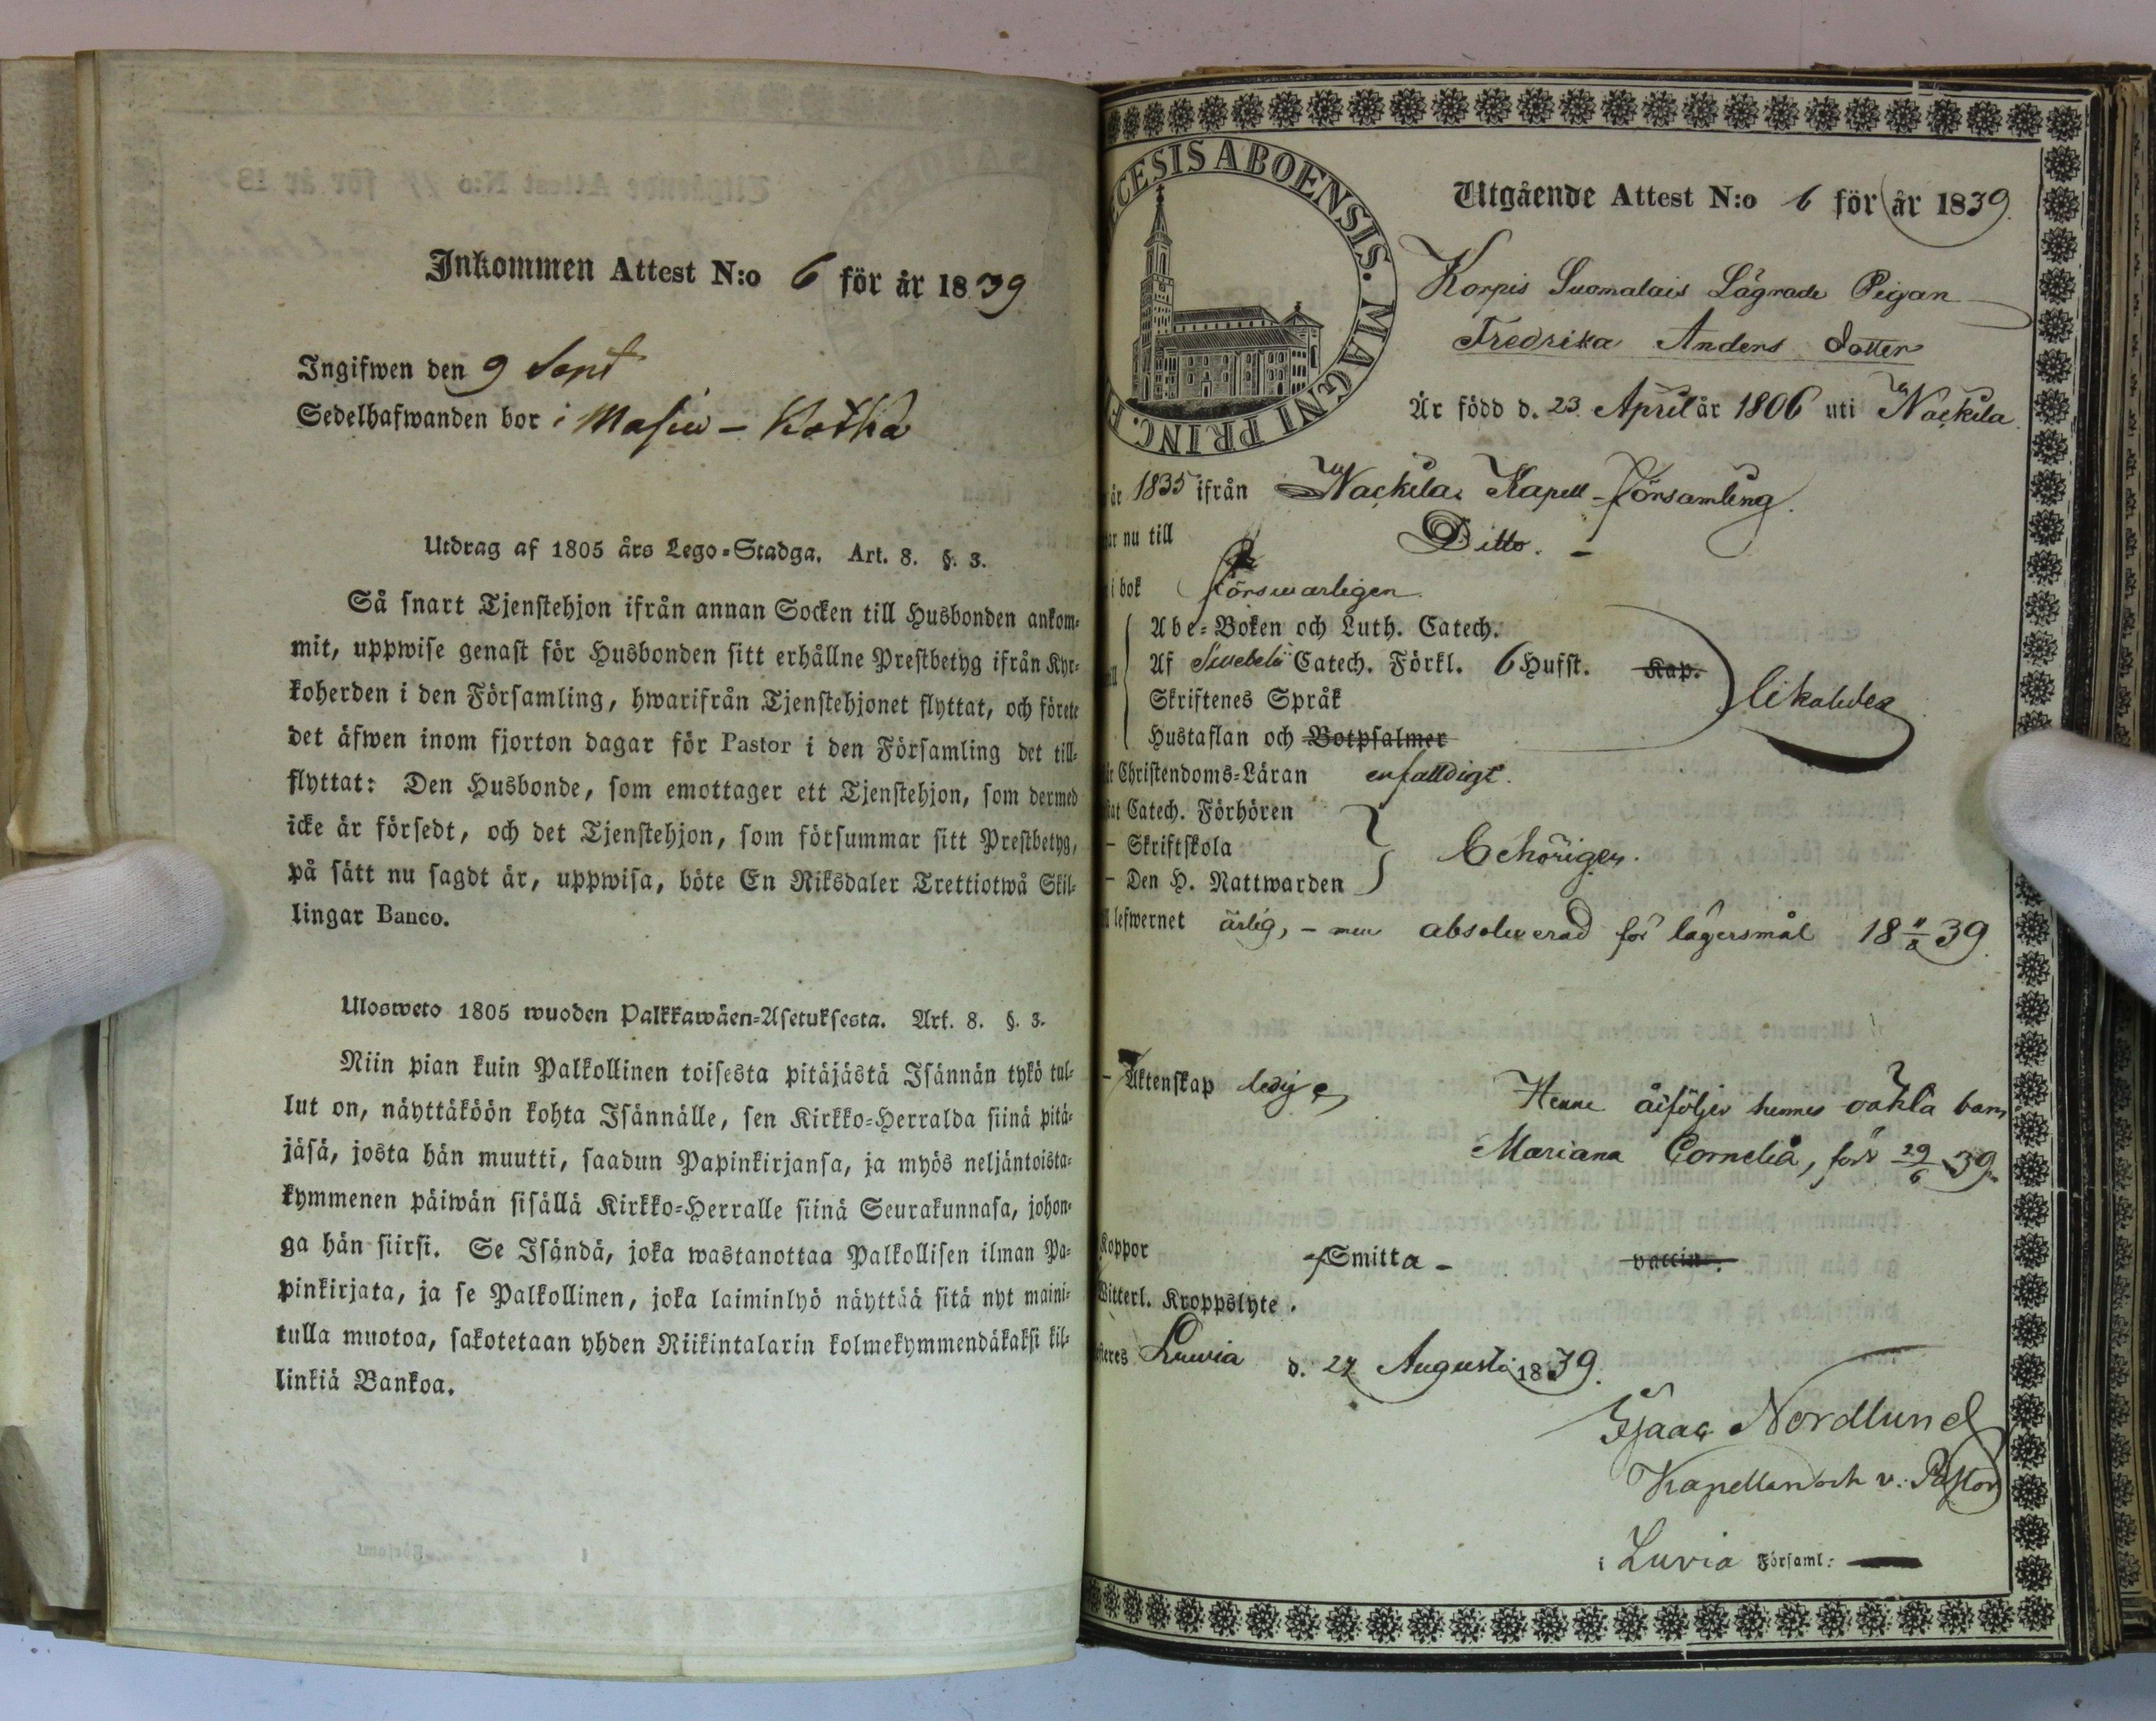 Inkommen Attest N:o 6 för år 1839
Ingifwen den 9 Sept
Sedelhafwanden bor i Masiu - Kotka
Utdrag af 1805 års Lego-Stadga. Art. 8. §. 3.
Så snart Tjenstehjon ifrån annan Socken till Husbonden ankom-
mit, uppwise genast för Husbonden sitt erhållne Prestbetyg ifrån Kyr-
koherden i den Församling, hwarifrån Tjenstehjonet flyttat, och förete
det äfwen inom fjorton dagar för Pastor i den Församling det till-
flyttat: Den Husbonde, som emottager ett Tjenstehjon, som dermed
icke är försedt, och det Tjenstehjon, som försummar sitt Prestbetyg,
på sätt nu sagdt är, uppwisa, böte En Riksdaler Trettiotwå Skil-
lingar Banco.
Ulosweto 1805 wuoden Palkkawäen-Asetuksesta. Art. 8. §. 3.
Niin pian kuin Palkollinen toisesta pitäjästä Isännän tykö tul-
lut on, näyttäköön kohta Isännälle, sen Kirkko-Herralda siinä pitä-
jäsä, josta hän muutti, saadun Papinkirjansa, ja myös neljäntoista-
kymmenen päiwän sisällä Kirkko-Herralle siinä Seurakunnasa, johon-
ga hän siirsi. Se Isändä, joka wastanottaa Palkollisen ilman Pa-
pinkirjata, ja se Palkollinen, joka laiminlyö näyttää sitä nyt maini-
tulla muotoa, sakotetaan yhden Riikintalarin kolmekymmendäkaksi kil-
linkiä Bankoa.
CESIS ABOENSIS. MAGNI PRINC. F
Utgående Attest N:o 6 för år 1839.
Korpis Suomalais Lägrade Pigan
Fredrika Anders dotter
Är född d. 23 April år 1806 uti Nackila.
år 1835 ifrån Nackila Kapell-församling.
ar nu till Ditto. -
i bok försvarligen
Abe-Boken och Luth. Catech.
Af Swebelii Catech. Förkl. 6 Hufst. Kap.
Skriftenes Språk
Hustaflan och Botpsalmer
likaledes
Christendoms-Läran enfalldigt.
Catech. Förhören
- Skriftskola
- Den H. Nattwarden
behörigen.
lefwernet ärlig, - men absolverad för lägersmål 18 11/8 39.
- Äktenskap ledig,
Henne åtföljer hennes oäkta barn
Mariana Cornelia, född 29/6 39.
Koppor Smitta - vaccin.
Witterl. Kroppslyte.
Luvia d. 27 Augusti 1839.
Isaac Nordlund
Kapellan och v. Pastor
i Luvia Församl: